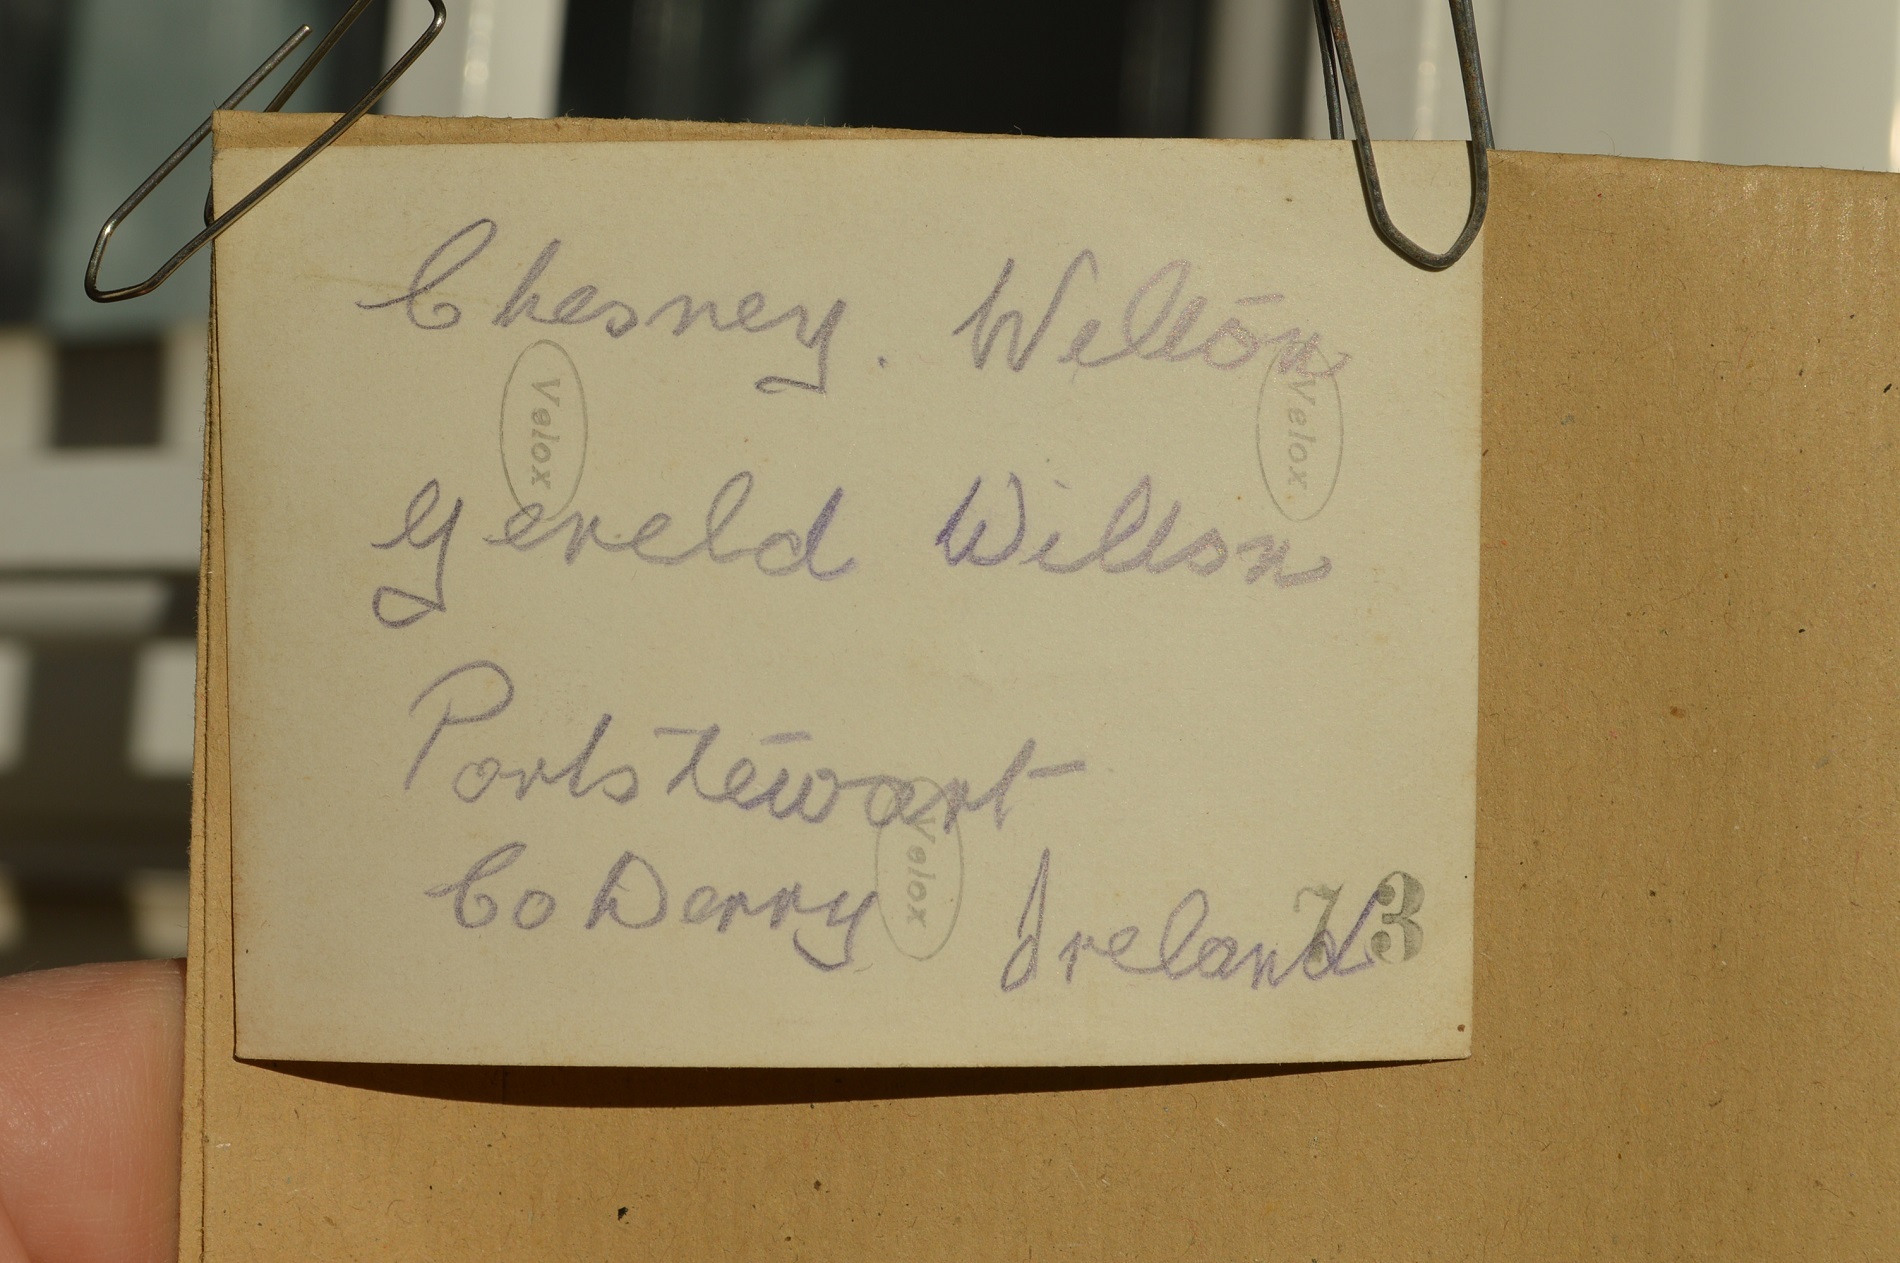 Chesney. Wilton
Velox
Velox
Gereld Wilton
Portstewart
Velox
Co Derry Ireland
73